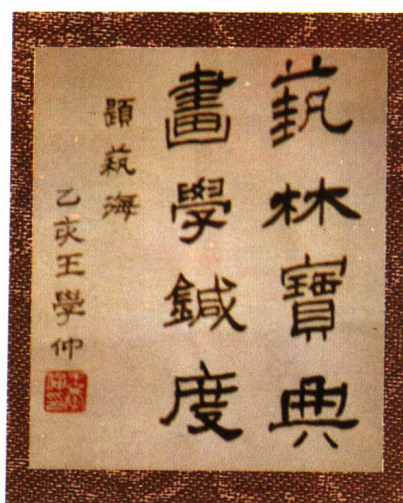 藝林寶典
畫學鍼度
題藝海
乙亥王學仲